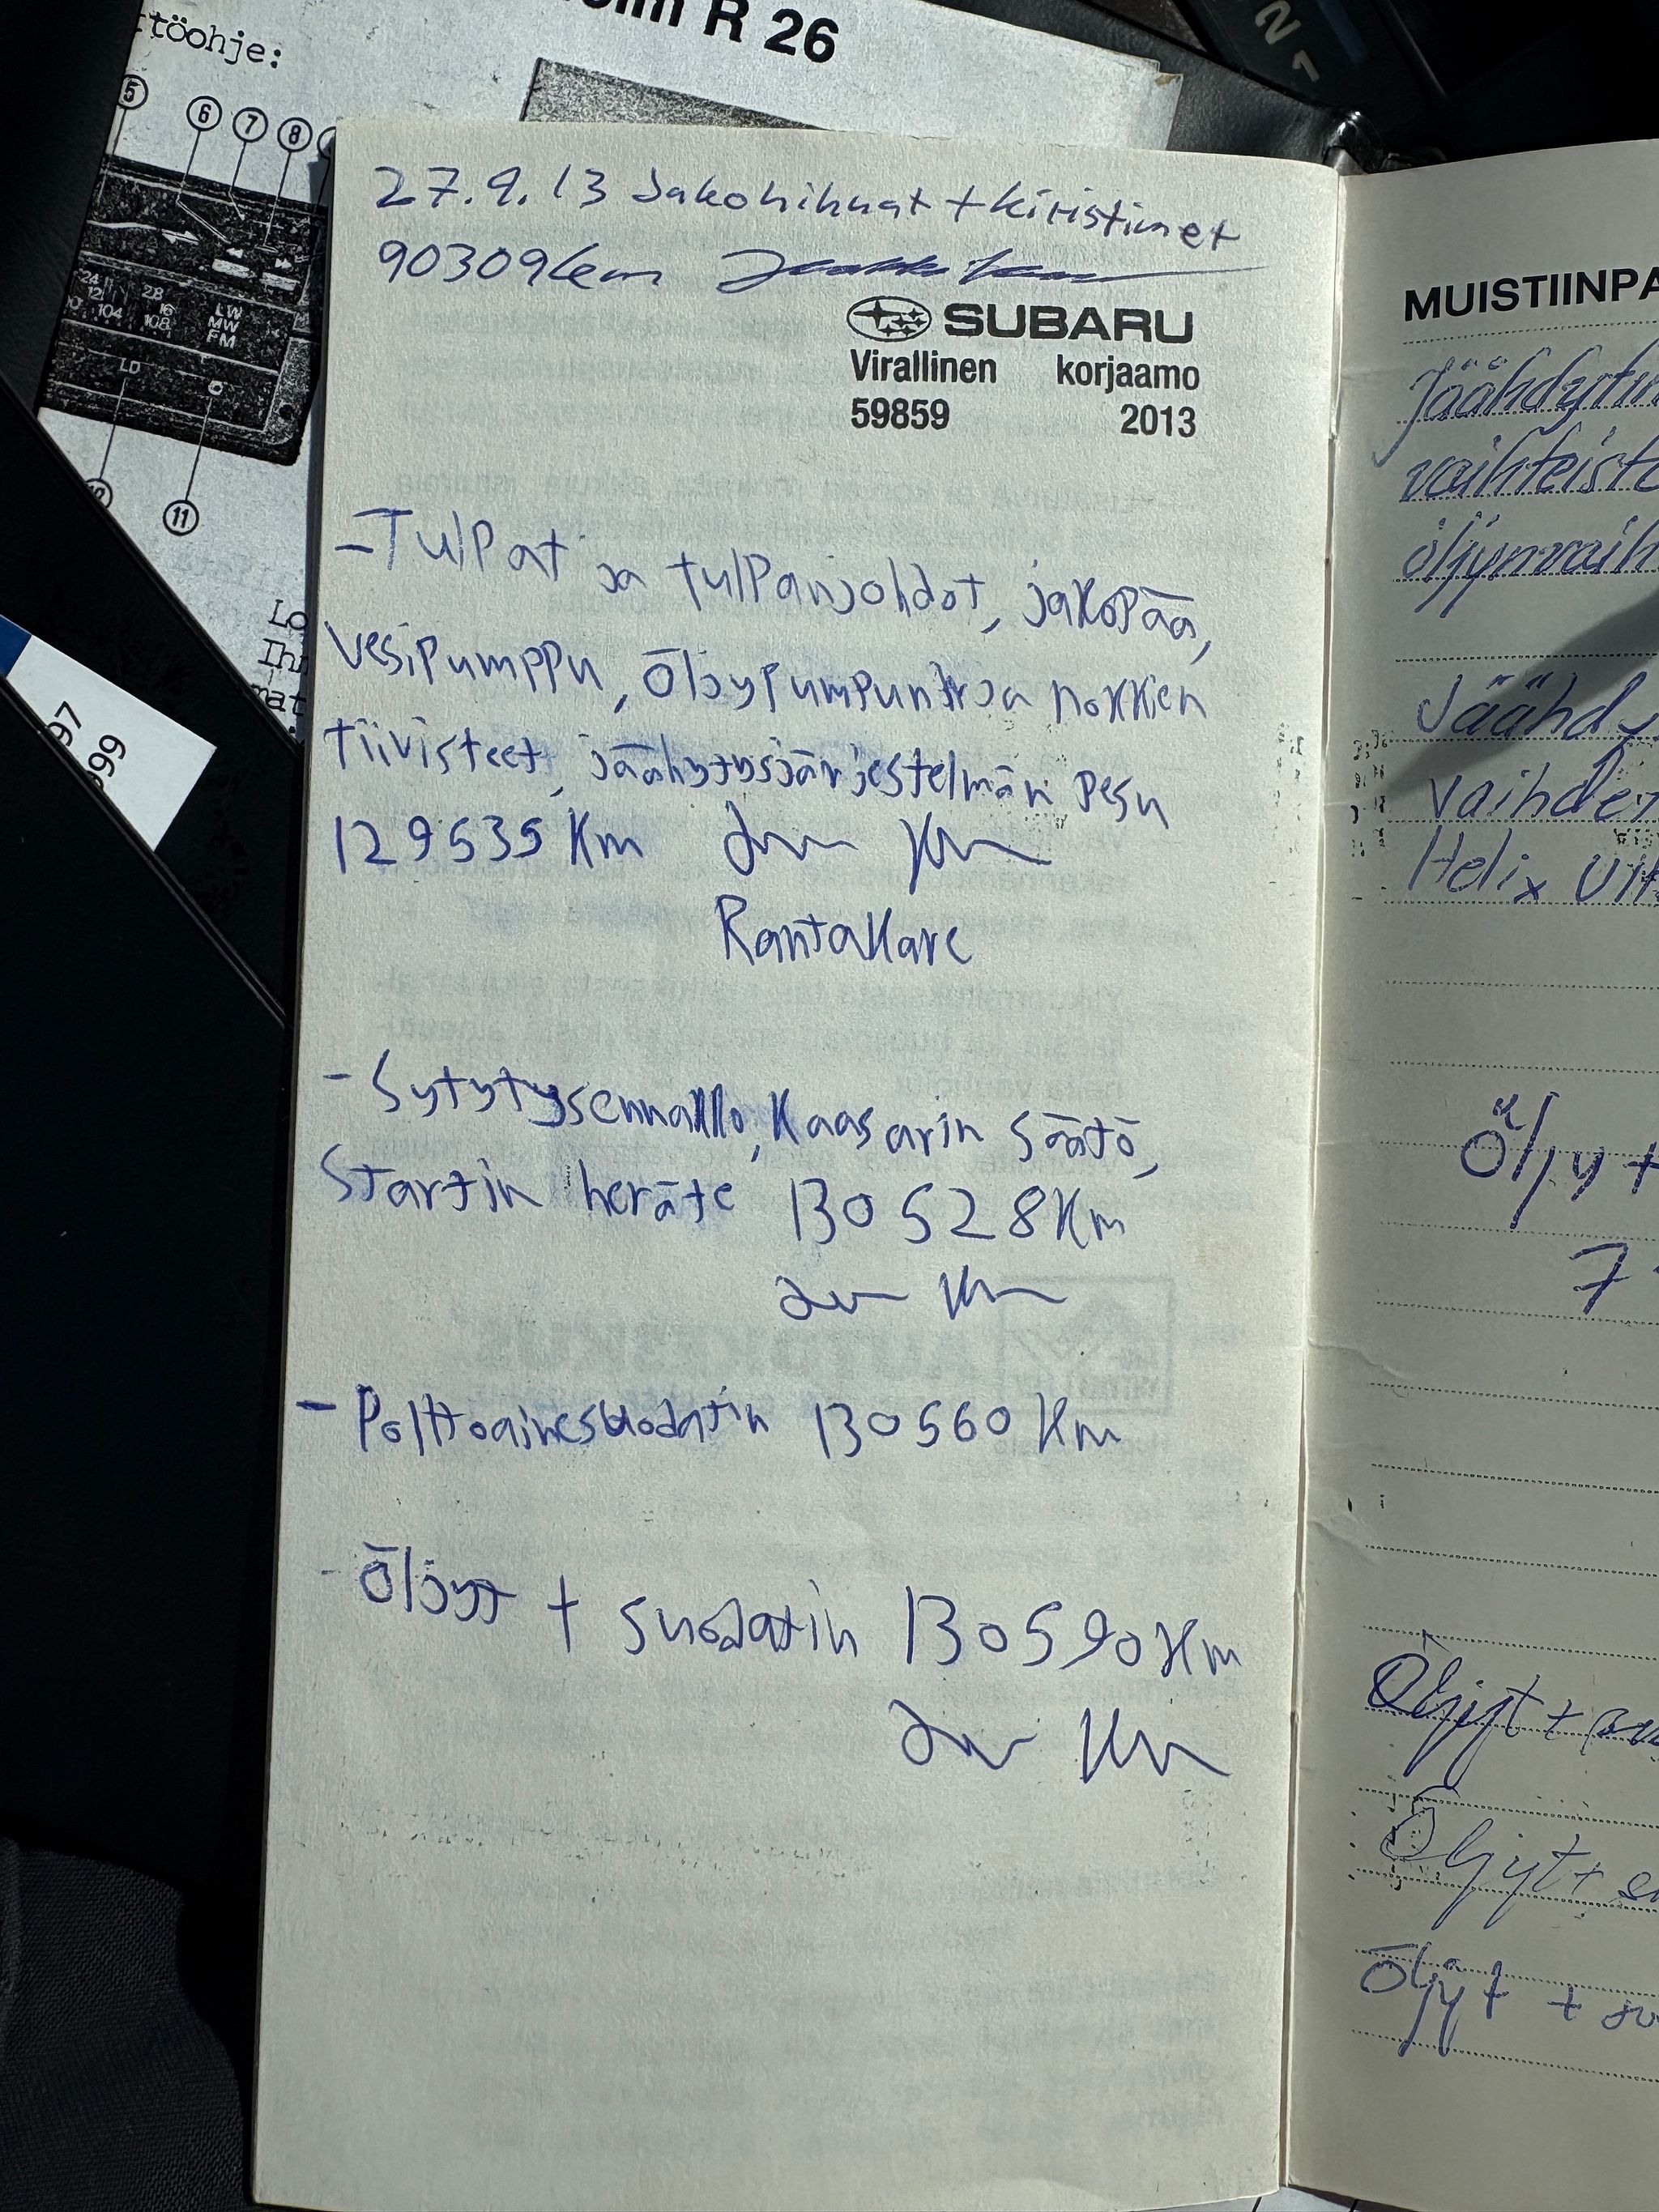 R 26
rtöohje:
5
6
7
8
24
12
104
28
16
108
LW
MW
FM
LD
11
Lo
97
999
2
1
27.9.13 Jakohihnat + kiristimet
90309km
SUBARU
Virallinen korjaamo
59859 2013
- Tulpat ja tulpanjohdot, jakopää,
vesipumppu, öljypumpun ja nokkien
tiivisteet, jäähytysjärjestelmän pesu
129535 Km
Rantakare
- Sytytysennakko, Kaasarin säätö,
Startin heräte 130528 Km
- Polttoainesuodatin 130560 Km
- Öljyt + suodatin 130590 Km
MUISTIINPA
Jäähdytin
vaihteisto
öljynvaih
Jäähdy
vaihdet
Helix Ult
Öljy +
7
Öljyt +
Öljyt +
Öljyt +